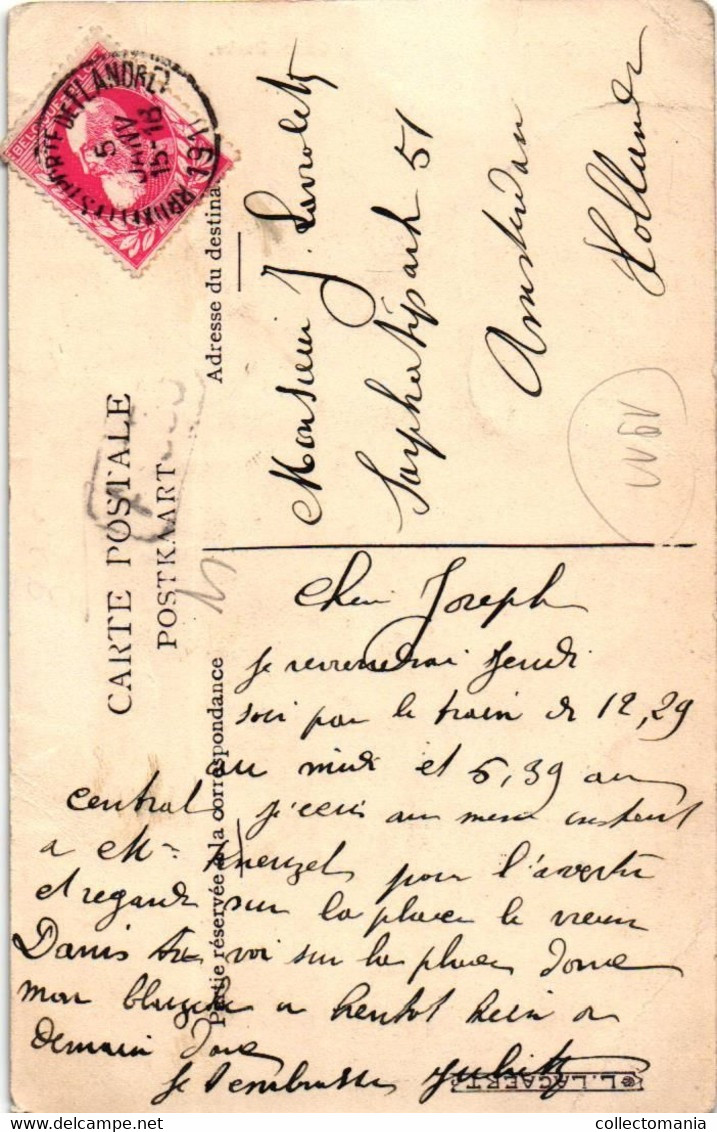 BELGIQUE
BRUXELLES (PORTE DE FLANDRE)
5
JANV
15-18
1911
CARTE POSTALE
POSTKAART
Adresse du destinat
Monsieur J.
Sarphatipark 51
Amsterdam
Hollande
Partie réservée à la correspondance
Cher Joseph
je reviendrai jeudi
soir par le train de 12,29
au midi et 5,39 au
central j'ecris au meme instant
a Mr pour l'avertir
et regarde sur la place le vieux
Danis voi sur la place donc
mon a bientot hein a
demain donc
Je t'embrasse
L. LAGAERT
collectomania